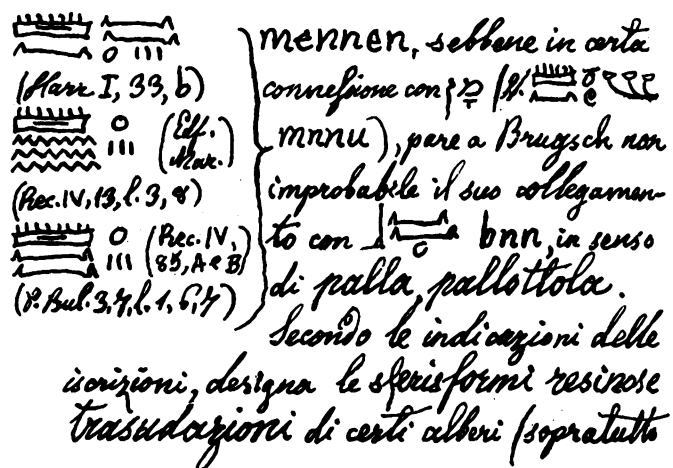 (Harr. I, 33, b)
(Edf.
Mar.)
(Rec. IV, 13, l. 3, 8)
(Rec. IV,
85, A e B)
(P. Bul. 3, 7, l. 1, 6, 7)
mennen, sebbene in certa
connessione con
mnnu), pare a Brugsch non
improbabile il suo collegamen-
to con bnn, in senso
di palla, pallottola.
Secondo le indicazioni delle
iscrizioni, designa le sferisformi resinose
trasudazioni di certi alberi (sopratutto